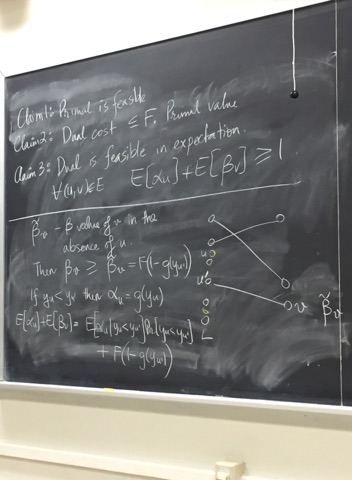 Claim 1: Primal is feasible
Claim 2: Dual cost ≤ F. Primal value
Claim 3: Dual is feasible in expectation.
∀(u,v)∈E E[αu]+E[βv] ≥ 1
β̃v - β value of v in the
absence of u.
Then βv ≥ β̃v = F(1-g(yu'))
If yu<yu' then αu = g(yu)
E[αu]+E[βv] = E[αu|yu<yu']Pr[yu<yu']
+ F(1-g(yu'))
u
u'
v β̃v
L